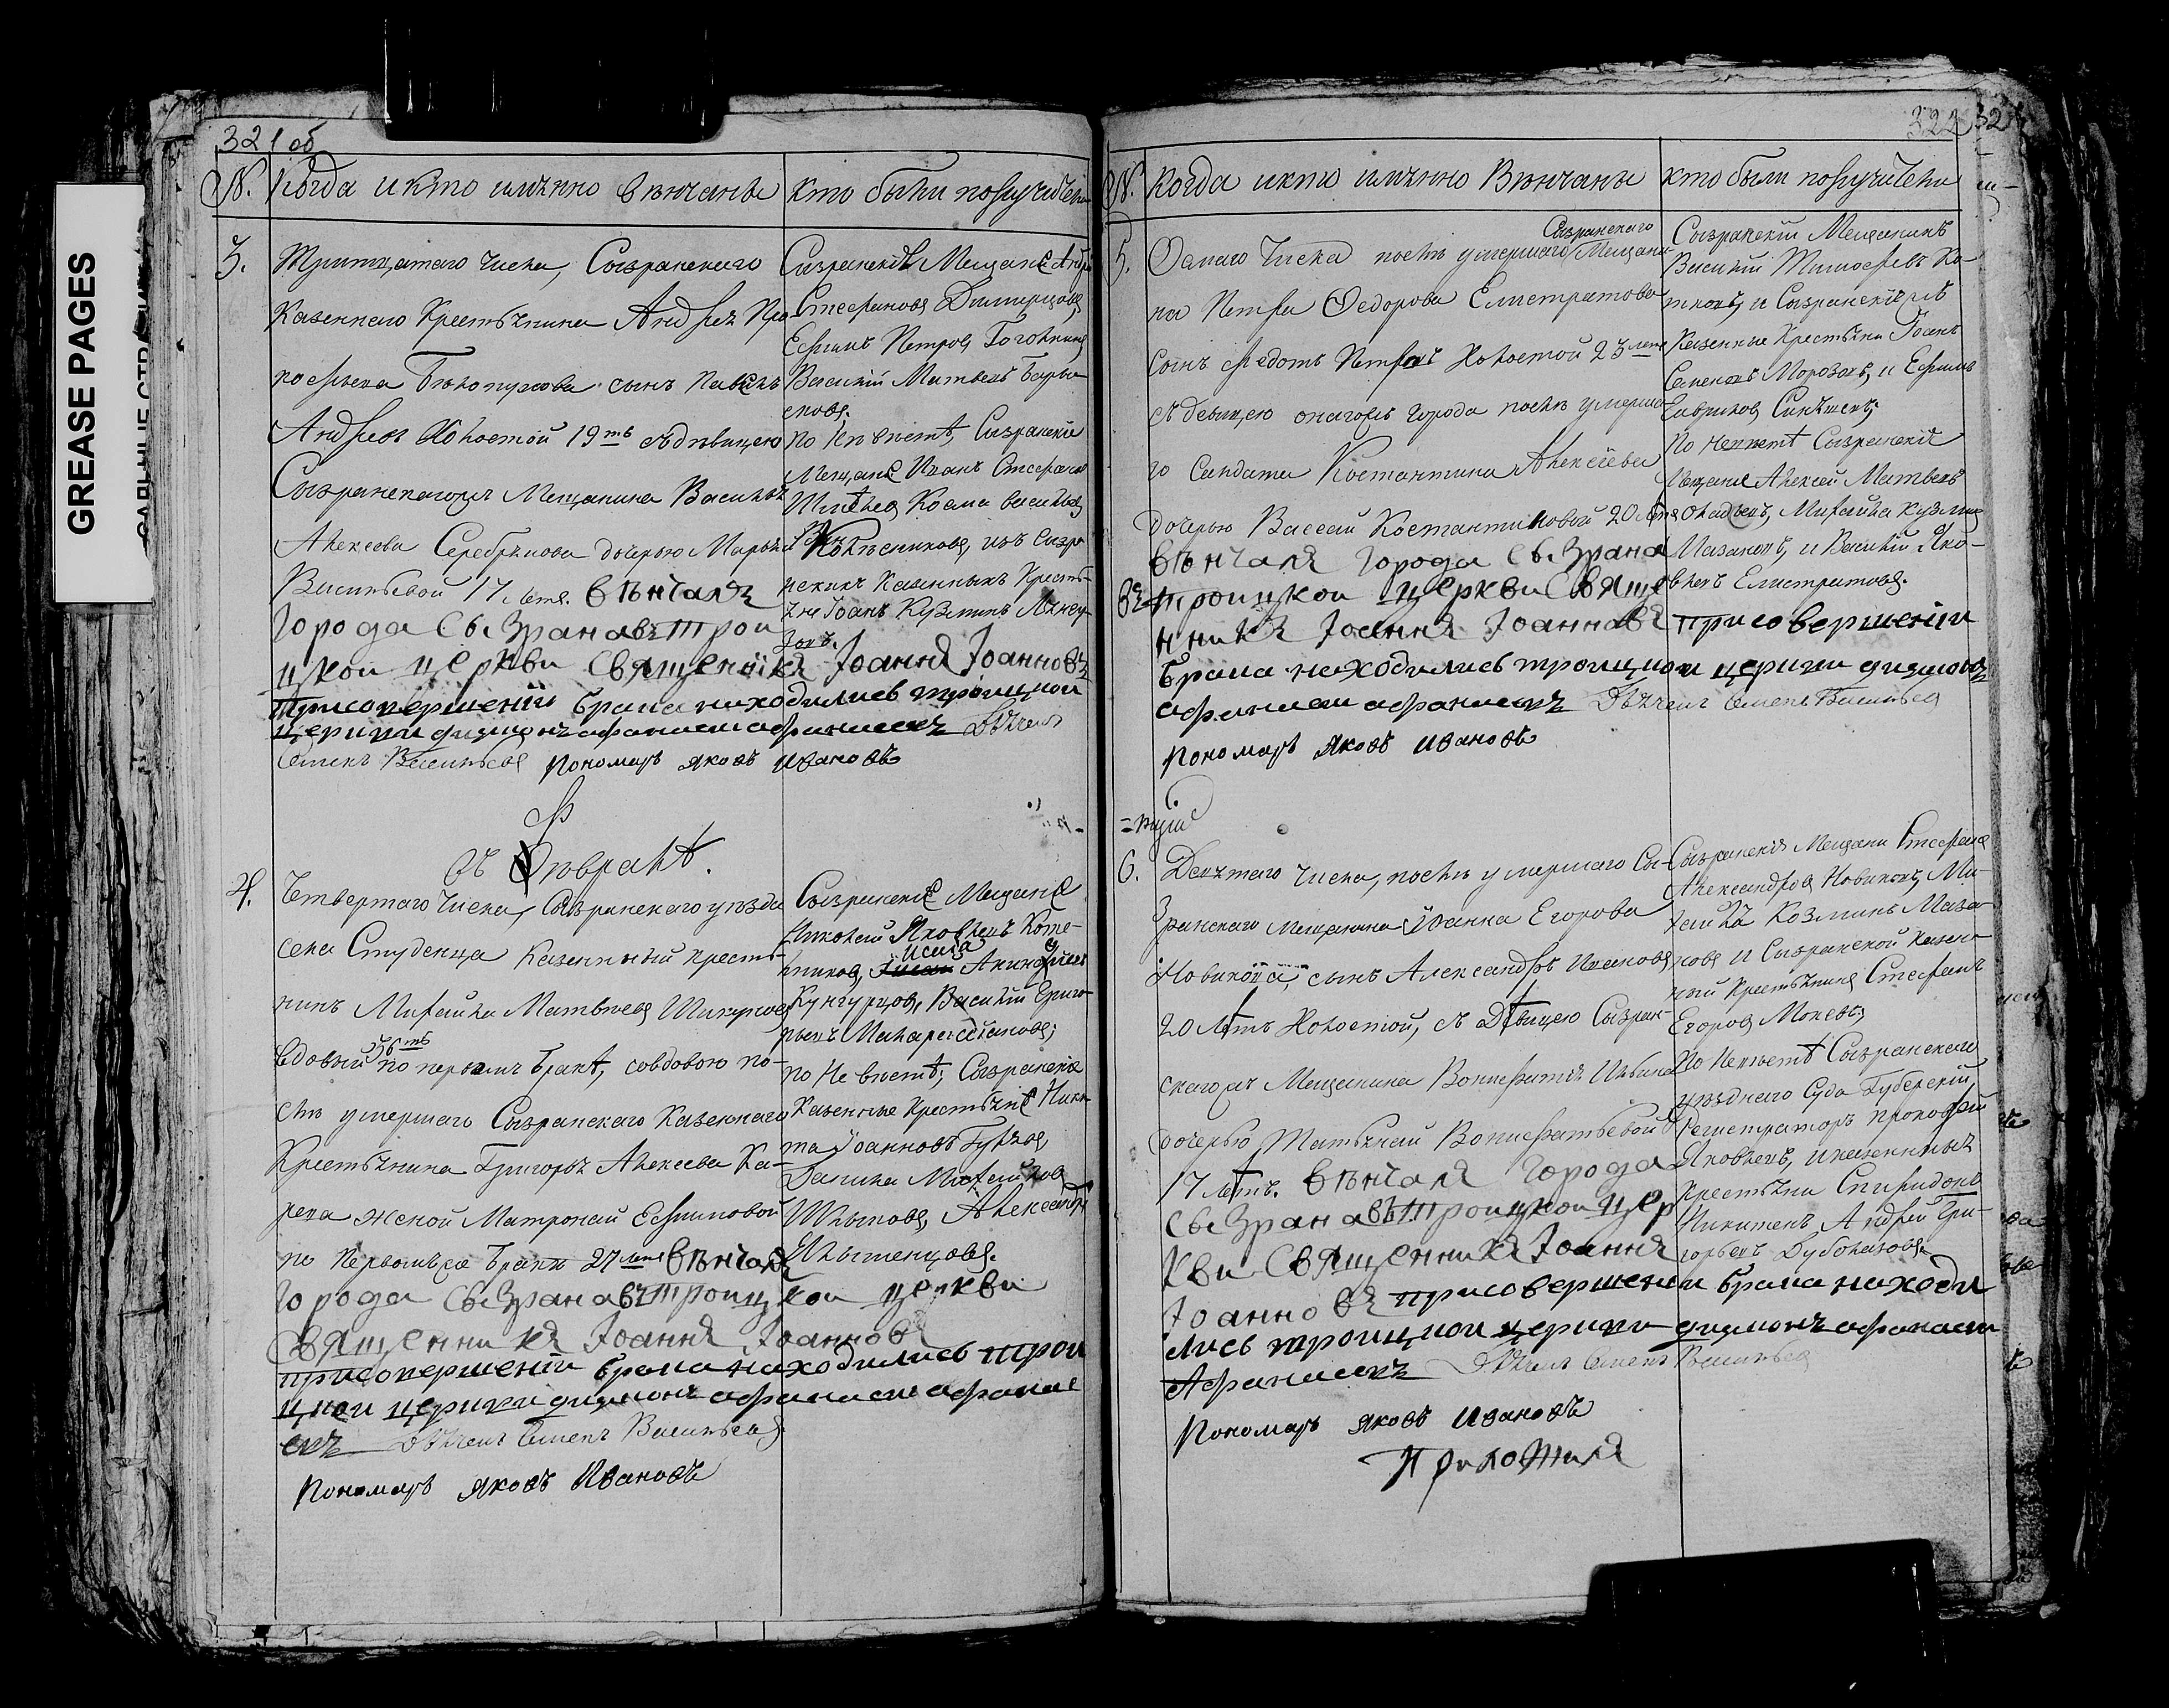 GREASE PAGES
321 об
№. Когда и кто имянно венчаны
кто были поручители
3.
Тритцатаго числа, Сызранскаго
Казеннаго Крестьянина Андрея Про-
кофьева сынъ Павелъ
Андреевъ Холостой 19тъ съ девицею
Сызранскагожъ Мещанина Василья
Алексеева Серебрякова дочерью Марьей
Васильевой 17 летъ. Венчалъ
Города Сызрана въ трои
цкои церкви Священникъ Іоаннъ Іоанновъ
При совершеніи брака находились троицкои
церкви диаконъ афанасеи афанасиевъ Дьячекъ
Семенъ Васильевъ Пономарь Яковъ Ивановъ
Сызранскіе Мещане
Стефановъ
Ефимъ Петровъ
Василій Матвеевъ
По невесте, Сызранскіе
Мещане Иванъ Стефановъ
Косма Васильевъ
Колесниковъ, изъ Сызра
нскихъ казенныхъ Кресть-
янъ Іоанъ Кузминъ
въ Февралѣ.
4.
Четвертаго числа, Сызранскаго уезда
села Студенца Казенный кресть-
нинъ Михайла Матвеевъ
вдовый 36тъ по первомъ браке, со вдовою по-
сле умершаго Сызранскаго Казеннаго
Крестьянина Григорья Алексеева Ка-
рева женой Матроной Ефимовой
по первомъ же браке 27 летъ Венчалъ
Города Сызрана въ троицкои церкви
Священникъ Іоаннъ Іоанновъ
при совершеніи брака находились трои
цкои церкви диаконъ афанасеи афанасі
евъ Дьячекъ Семенъ Васильевъ
Пономарь Яковъ Ивановъ
Сызранскіе Мещане
Николай Яковлевъ Коте-
льниковъ, Исай
Кунгурцовъ, Василій Григо-
рьевъ
по Невесте; Сызранскіе
Казенные Крестьяне Ники-
та Іоанновъ
Данила Михайловъ
Александръ
322
№. Когда и кто имянно Венчаны
кто были поручители
5.
Онаго Числа после умершаго Сызранскаго Мещани-
на Петра Федорова Елистратова
сынъ Федотъ Петровъ Холостой 23 летъ
съ девицею онагожъ города после умерша-
го Салдата Костантина Алексеева
дочерью Вассой Костантиновой 20 летъ
Венчалъ Города Сызрана
въ троицкои церкви Священ
нникъ Іоаннъ Іоанновъ При совершеніи
брака находились троицкои церкви диаконъ
афанасеи афанасиевъ Дьячекъ Семенъ Васильевъ
Пономарь Яковъ Ивановъ
Сызранскій Мещанинъ
Василій Тимофеевъ Ко-
и Сызранскіежъ
Казенные Крестьяне Іоанъ
Семеновъ Морозовъ, и Ефимъ
Гавриловъ
По невесте Сызранскіе
Мещане Алексей Матвеевъ
Михайла Кузминъ
Мазановъ, и Василій Яко-
влевъ Елистратовъ.
6.
Девятаго числа, после умершаго Сы-
зранскаго мещанина Іоанна Егорова
Новикова сынъ Александръ Ивановъ
20 Летъ Холостой, съ Девицею Сызран-
скагожъ Мещанина Вонифатія Ильина
дочерью Татьяной Вонифатьевой
17 летъ. Венчалъ Города
Сызрана въ троицкои цер
кви Священникъ Іоаннъ
Іоанновъ при совершеніи брака находи
лись троицкои церкви диаконъ афанасеи
Афанасиевъ Дьячекъ Семенъ Васильевъ
Пономарь Яковъ Ивановъ
Приложилъ
Сызранскіе Мещане Стефанъ
Александровъ Новиковъ, Ми-
хайла Козминъ Маза-
новъ и Сызранской казен-
ный Крестьянинъ Стефанъ
Егоровъ Мокевъ;
По Невесте Сызранскаго
уезднаго Суда Губернскій
Регистраторъ Прокофей
Яковлевъ, и казенныя
крестьяне Спиридонъ
Никитинъ Андрей Гри-
горьевъ